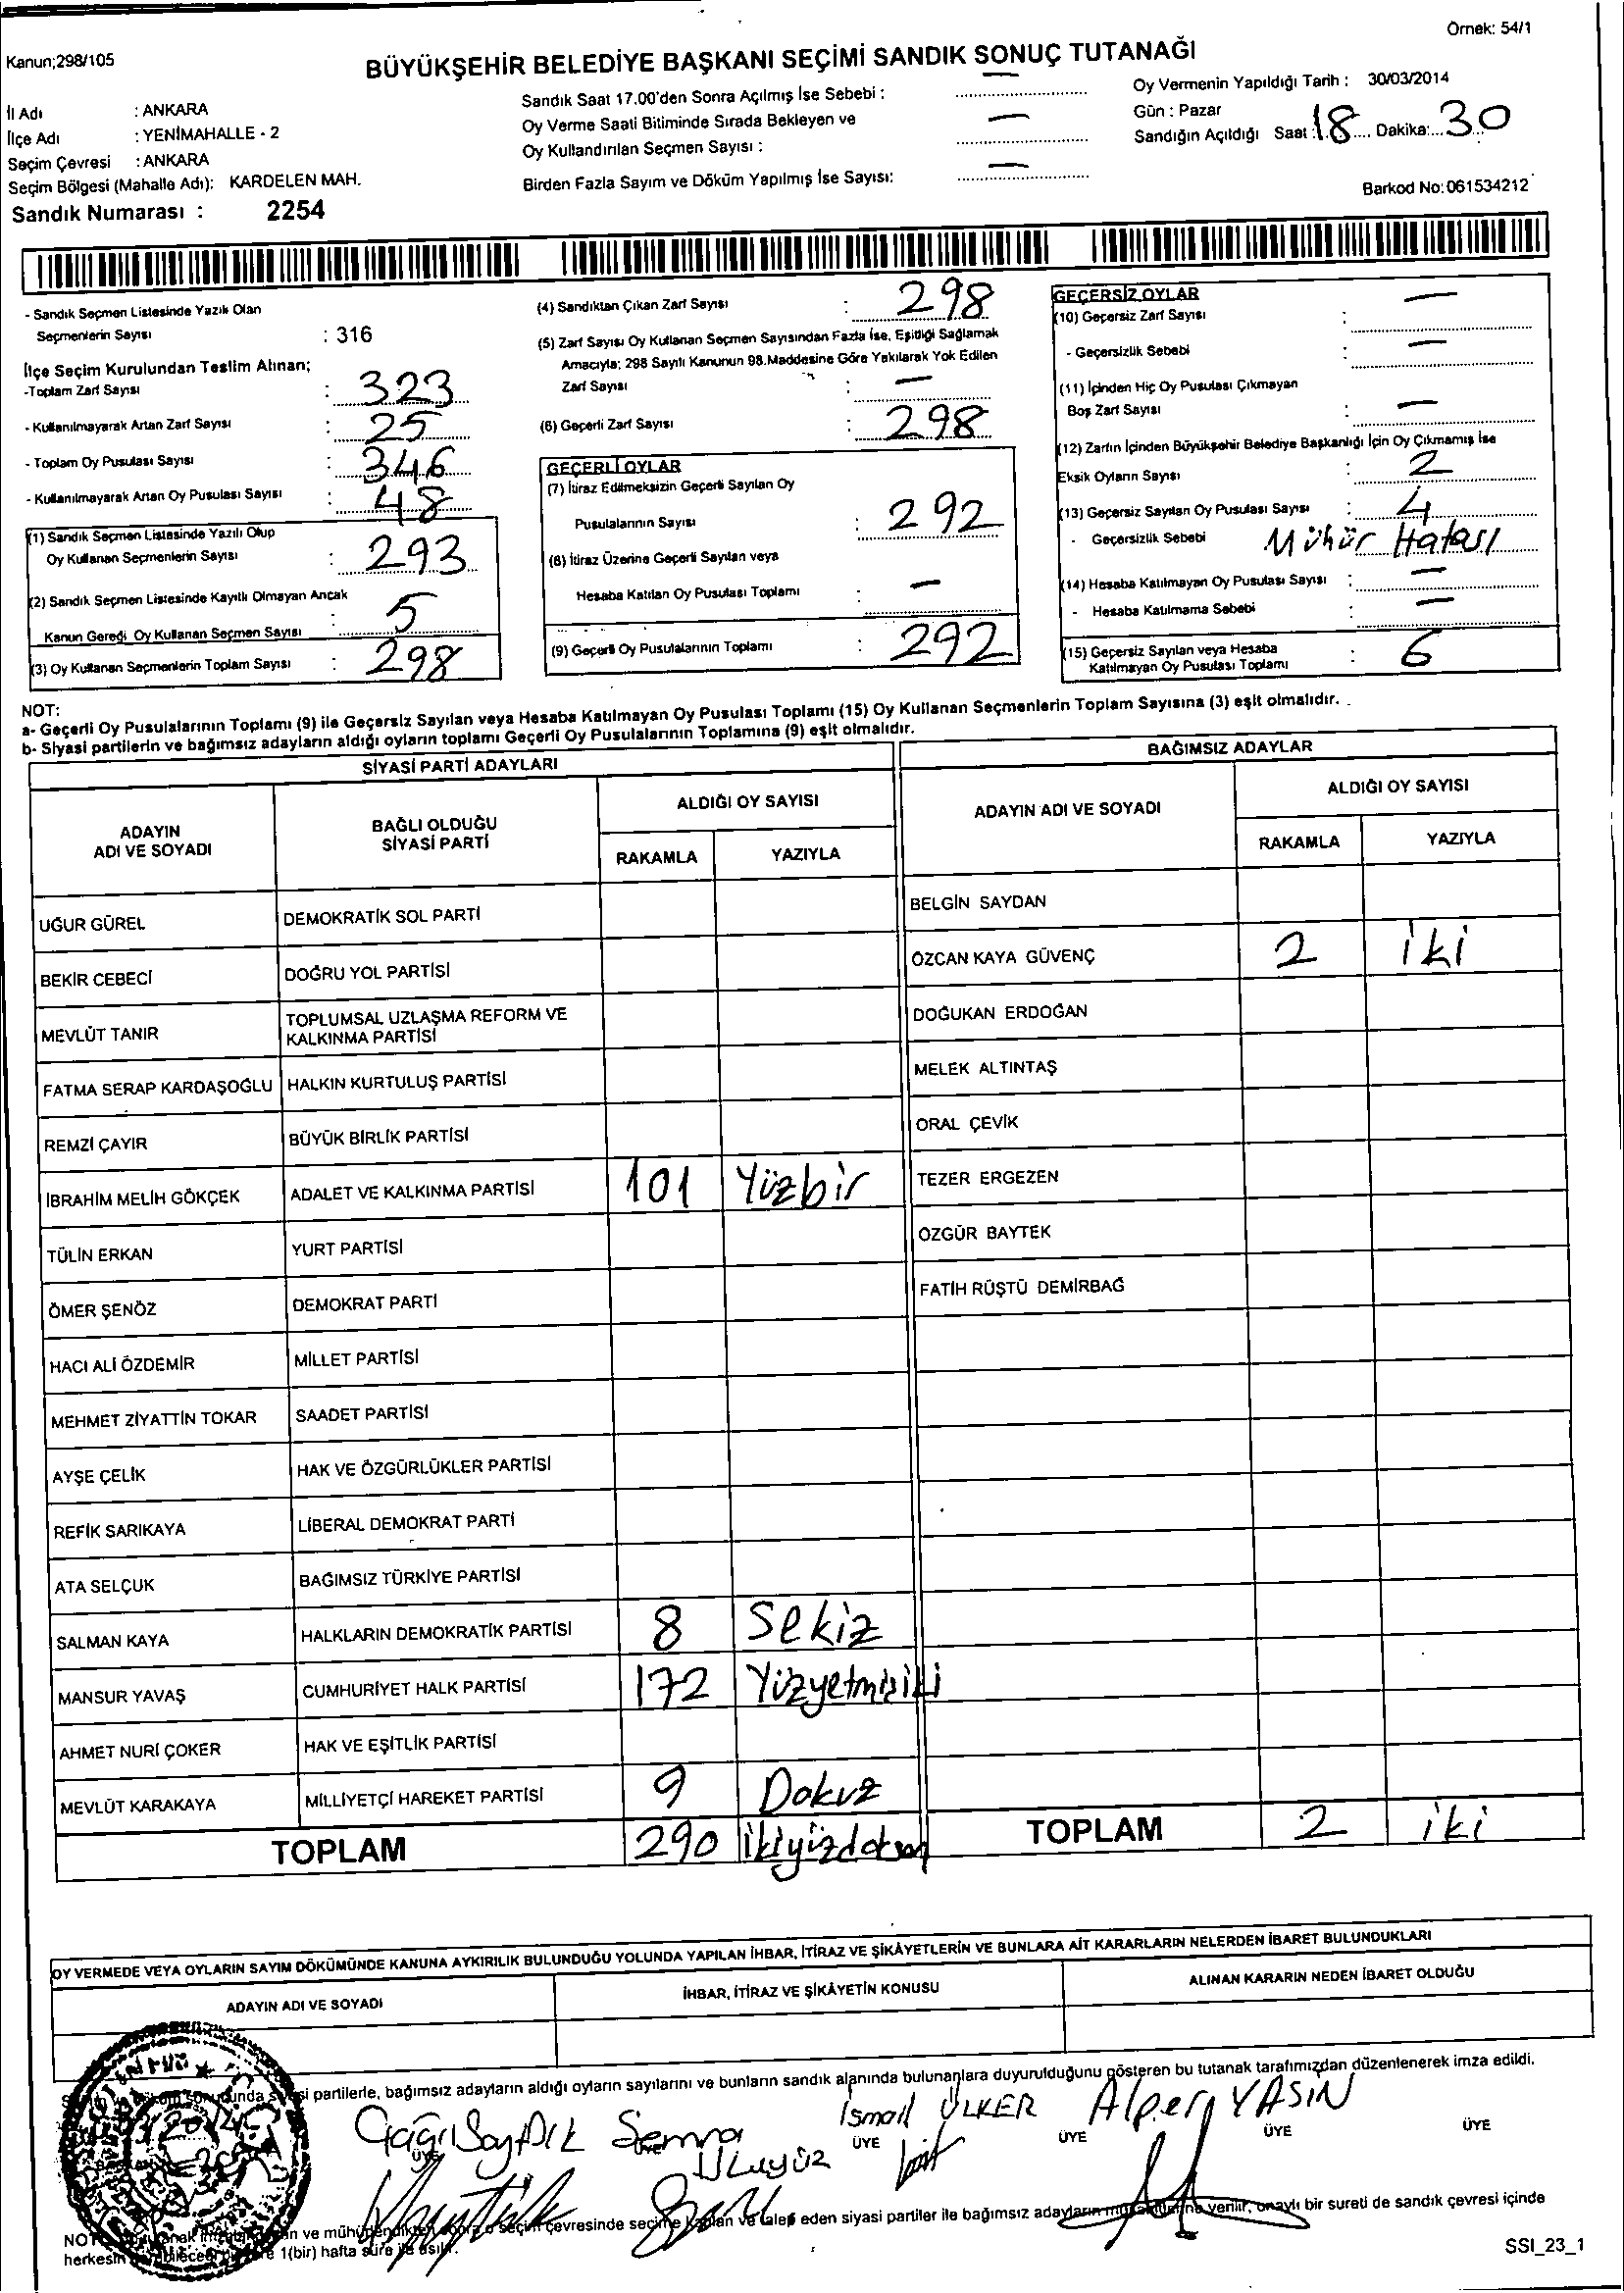 Örnek: 54/1
Kanun;298/105
BÜYÜKŞEHİR BELEDİYE BAŞKANI SEÇİMİ SANDIK SONUÇ TUTANAĞI
İl Adı : ANKARA
İlçe Adı : YENİMAHALLE - 2
Seçim Çevresi : ANKARA
Seçim Bölgesi (Mahalle Adı): KARDELEN MAH.
Sandık Numarası : 2254
Sandık Saat 17.00'den Sonra Açılmış İse Sebebi : —
Oy Verme Saati Bitiminde Sırada Bekleyen ve
Oy Kullandırılan Seçmen Sayısı : —
Birden Fazla Sayım ve Döküm Yapılmış İse Sayısı: —
Oy Vermenin Yapıldığı Tarih : 30/03/2014
Gün : Pazar
Sandığın Açıldığı Saat : 18 Dakika: 30
Barkod No: 061534212
- Sandık Seçmen Listesinde Yazılı Olan
Seçmenlerin Sayısı : 316
İlçe Seçim Kurulundan Teslim Alınan;
-Toplam Zarf Sayısı : 323
- Kullanılmayarak Artan Zarf Sayısı : 25
- Toplam Oy Pusulası Sayısı : 346
- Kullanılmayarak Artan Oy Pusulası Sayısı : 48
(1) Sandık Seçmen Listesinde Yazılı Olup
Oy Kullanan Seçmenlerin Sayısı : 293
(2) Sandık Seçmen Listesinde Kayıtlı Olmayan Ancak
Kanun Gereği Oy Kullanan Seçmen Sayısı : 5
(3) Oy Kullanan Seçmenlerin Toplam Sayısı : 298
(4) Sandıktan Çıkan Zarf Sayısı : 298
(5) Zarf Sayısı Oy Kullanan Seçmen Sayısından Fazla İse, Eşitliği Sağlamak
Amacıyla; 298 Sayılı Kanunun 98.Maddesine Göre Yakılarak Yok Edilen
Zarf Sayısı : —
(6) Geçerli Zarf Sayısı : 298
GEÇERLİ OYLAR
(7) İtiraz Edilmeksizin Geçerli Sayılan Oy
Pusulalarının Sayısı : 292
(8) İtiraz Üzerine Geçerli Sayılan veya
Hesaba Katılan Oy Pusulası Toplamı : —
(9) Geçerli Oy Pusulalarının Toplamı : 292
GEÇERSİZ OYLAR
(10) Geçersiz Zarf Sayısı : —
- Geçersizlik Sebebi : —
(11) İçinden Hiç Oy Pusulası Çıkmayan
Boş Zarf Sayısı : —
(12) Zarfın İçinden Büyükşehir Belediye Başkanlığı İçin Oy Çıkmamış İse
Eksik Oyların Sayısı : 2
(13) Geçersiz Sayılan Oy Pusulası Sayısı : 4
- Geçersizlik Sebebi Mühür Hatası
(14) Hesaba Katılmayan Oy Pusulası Sayısı : —
- Hesaba Katılmama Sebebi : —
(15) Geçersiz Sayılan veya Hesaba
Katılmayan Oy Pusulası Toplamı : 6
NOT:
a- Geçerli Oy Pusulalarının Toplamı (9) ile Geçersiz Sayılan veya Hesaba Katılmayan Oy Pusulası Toplamı (15) Oy Kullanan Seçmenlerin Toplam Sayısına (3) eşit olmalıdır.
b- Siyasi partilerin ve bağımsız adayların aldığı oyların toplamı Geçerli Oy Pusulalarının Toplamına (9) eşit olmalıdır.
SİYASİ PARTİ ADAYLARI
ADAYIN ADI VE SOYADI
BAĞLI OLDUĞU SİYASİ PARTİ
ALDIĞI OY SAYISI
RAKAMLA YAZIYLA
UĞUR GÜREL DEMOKRATİK SOL PARTİ
BEKİR CEBECİ DOĞRU YOL PARTİSİ
MEVLÜT TANIR TOPLUMSAL UZLAŞMA REFORM VE KALKINMA PARTİSİ
FATMA SERAP KARDAŞOĞLU HALKIN KURTULUŞ PARTİSİ
REMZİ ÇAYIR BÜYÜK BİRLİK PARTİSİ
İBRAHİM MELİH GÖKÇEK ADALET VE KALKINMA PARTİSİ 101 Yüzbir
TÜLİN ERKAN YURT PARTİSİ
ÖMER ŞENÖZ DEMOKRAT PARTİ
HACI ALİ ÖZDEMİR MİLLET PARTİSİ
MEHMET ZİYATTİN TOKAR SAADET PARTİSİ
AYŞE ÇELİK HAK VE ÖZGÜRLÜKLER PARTİSİ
REFİK SARIKAYA LİBERAL DEMOKRAT PARTİ
ATA SELÇUK BAĞIMSIZ TÜRKİYE PARTİSİ
SALMAN KAYA HALKLARIN DEMOKRATİK PARTİSİ 8 Sekiz
MANSUR YAVAŞ CUMHURİYET HALK PARTİSİ 172 Yüzyetmişiki
AHMET NURİ ÇOKER HAK VE EŞİTLİK PARTİSİ
MEVLÜT KARAKAYA MİLLİYETÇİ HAREKET PARTİSİ 9 Dokuz
TOPLAM 290 ikiyüzdoksan
BAĞIMSIZ ADAYLAR
ADAYIN ADI VE SOYADI
ALDIĞI OY SAYISI
RAKAMLA YAZIYLA
BELGİN SAYDAN
ÖZCAN KAYA GÜVENÇ 2 iki
DOĞUKAN ERDOĞAN
MELEK ALTINTAŞ
ORAL ÇEVİK
TEZER ERGEZEN
ÖZGÜR BAYTEK
FATİH RÜŞTÜ DEMİRBAĞ
TOPLAM 2 iki
OY VERMEDE VEYA OYLARIN SAYIM DÖKÜMÜNDE KANUNA AYKIRILIK BULUNDUĞU YOLUNDA YAPILAN İHBAR, İTİRAZ VE ŞİKÂYETLERİN VE BUNLARA AİT KARARLARIN NELERDEN İBARET BULUNDUKLARI
ADAYIN ADI VE SOYADI
İHBAR, İTİRAZ VE ŞİKÂYETİN KONUSU
ALINAN KARARIN NEDEN İBARET OLDUĞU
partilerle, bağımsız adayların aldığı oyların sayılarını ve bunların sandık alanında bulunanlara duyurulduğunu gösteren bu tutanak tarafımızdan düzenlenerek imza edildi.
Semra Uluyüz
İsmail ÜLKER
Alper YASIN
ÜYE ÜYE ÜYE ÜYE ÜYE
çevresinde seçime katılan ve talep eden siyasi partiler ile bağımsız adayların verilir, onaylı bir sureti de sandık çevresi içinde
herkesin 1(bir) hafta süre ile asılır.
SSI_23_1